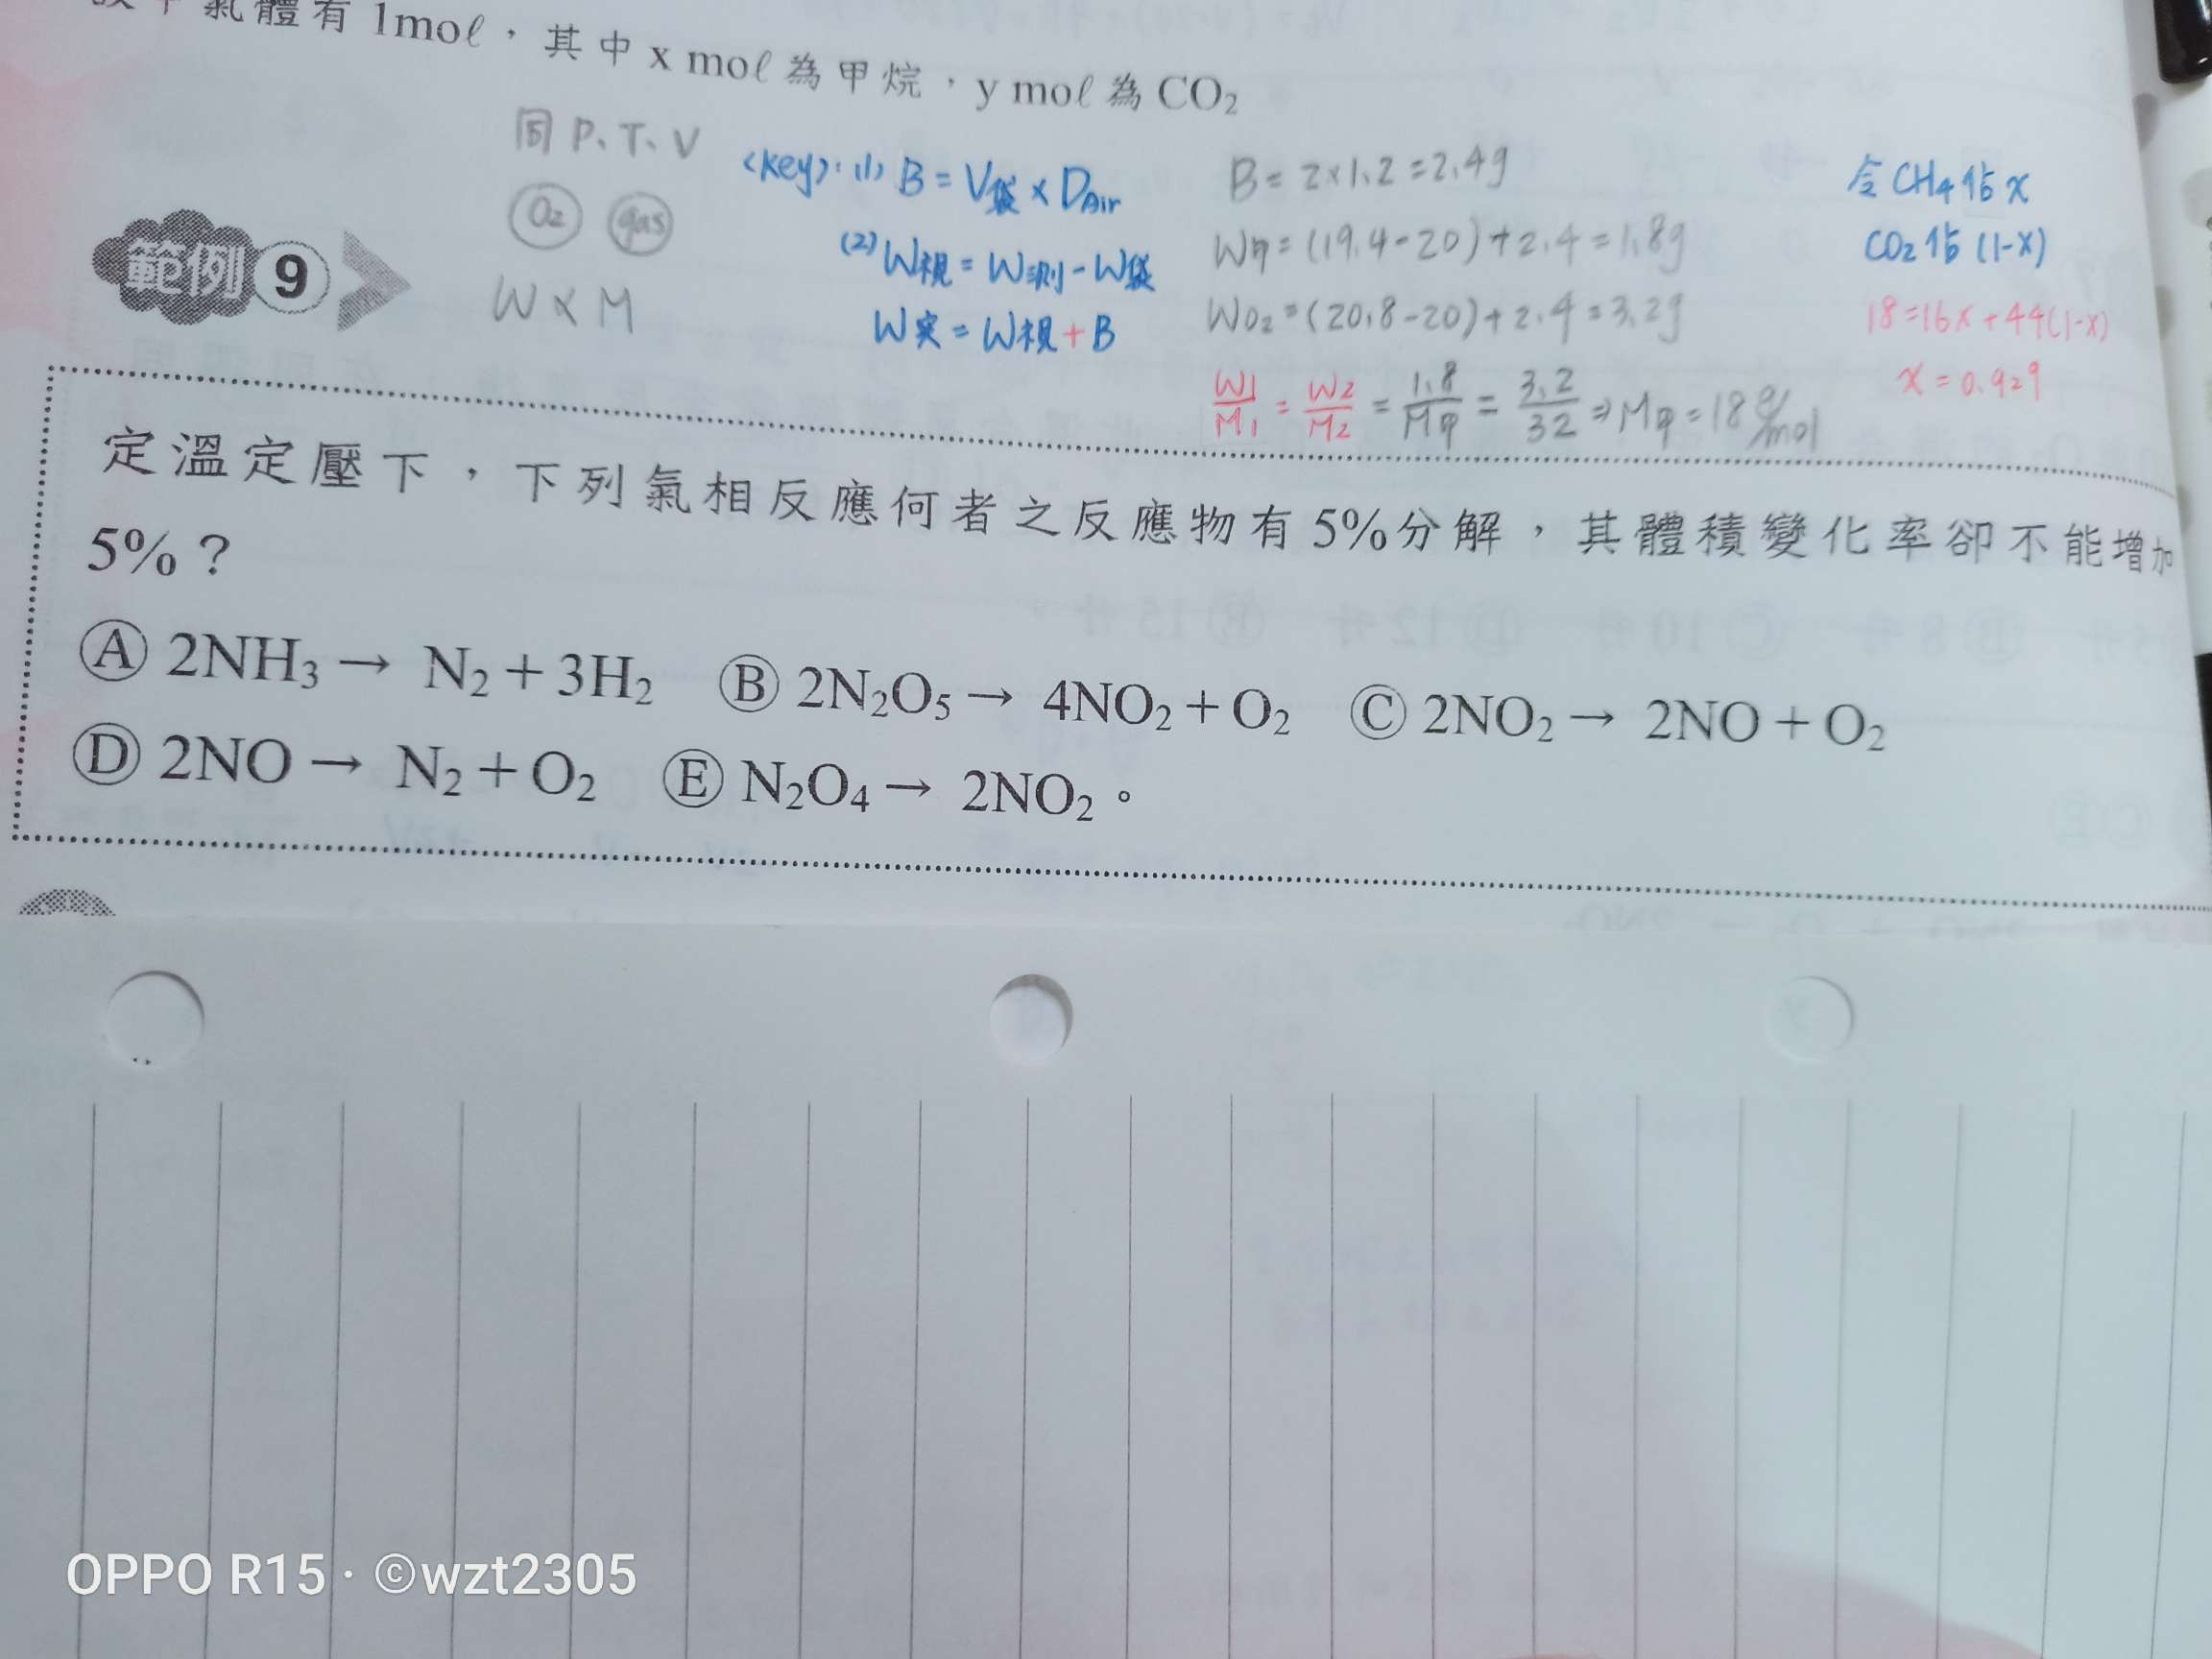 氣體有 1molℓ，其中 x molℓ 為甲烷，y molℓ 為 CO₂
同 P、T、V
O₂ gas
W ∝ M
<key>: (1) B = V袋 × DAir
(2) W視 = W測 - W袋
W实 = W視 + B
B = 2×1.2 = 2.4g
W甲 = (19.4-20)+2.4 = 1.8g
WO₂ = (20.8-20)+2.4 = 3.2g
W1/M1 = W2/M2 = 1.8/M甲 = 3.2/32 ⇒ M甲 = 18 g/mol
令 CH4 佔 x
CO₂ 佔 (1-x)
18 = 16x + 44(1-x)
x = 0.929
範例 9
定溫定壓下，下列氣相反應何者之反應物有 5%分解，其體積變化率卻不能增加
5%？
Ⓐ 2NH₃ → N₂+3H₂ Ⓑ 2N₂O₅ → 4NO₂+O₂ Ⓒ 2NO₂ → 2NO+O₂
Ⓓ 2NO → N₂+O₂ Ⓔ N₂O₄ → 2NO₂。
OPPO R15 · ©wzt2305